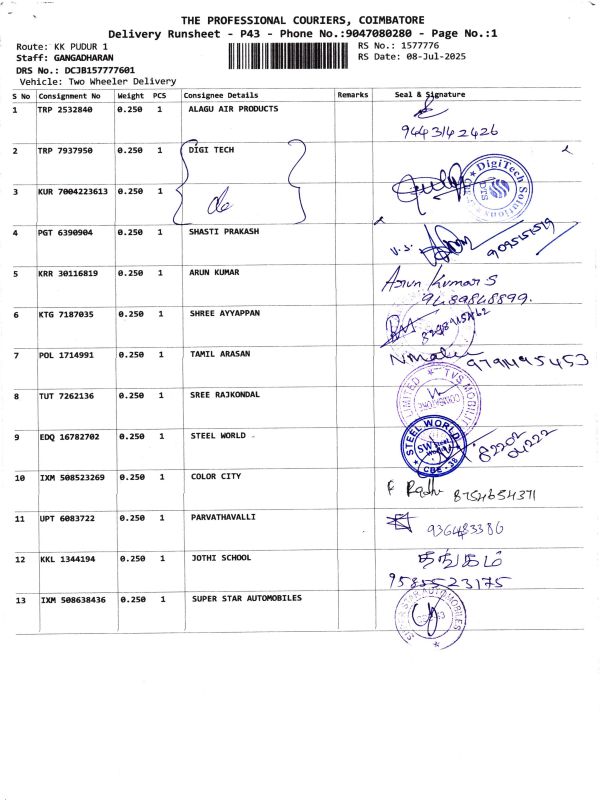 THE PROFESSIONAL COURIERS, COIMBATORE
Delivery Runsheet - P43 - Phone No.:9047080280 - Page No.:1
Route: KK PUDUR 1
RS No.: 1577776
Staff: GANGADHARAN
RS Date: 08-Jul-2025
DRS No.: DCJB157777601
Vehicle: Two Wheeler Delivery
S No Consignment No Weight PCS Consignee Details Remarks Seal & Signature
1 TRP 2532840 0.250 1 ALAGU AIR PRODUCTS
9443142426
2 TRP 7937950 0.250 1 DIGI TECH
DigiTech Solutions
3 KUR 7004223613 0.250 1
4 PGT 6390904 0.250 1 SHASTI PRAKASH
V.S.
5 KRR 30116819 0.250 1 ARUN KUMAR Arun Kumar S
9489848899.
6 KTG 7187035 0.250 1 SHREE AYYAPPAN
7 POL 1714991 0.250 1 TAMIL ARASAN
9791495453
8 TUT 7262136 0.250 1 SREE RAJKONDAL
LIMITED ★ TVS MOBILIT
9 EDQ 16782702 0.250 1 STEEL WORLD
STEEL WORLD
SW Steel World
CBE-38
10 IXM 508523269 0.250 1 COLOR CITY
8754654371
11 UPT 6083722 0.250 1 PARVATHAVALLI
936483386
12 KKL 1344194 0.250 1 JOTHI SCHOOL தங்கம்
9585523175
13 IXM 508638436 0.250 1 SUPER STAR AUTOMOBILES
SUPER STAR AUTOMOBILES